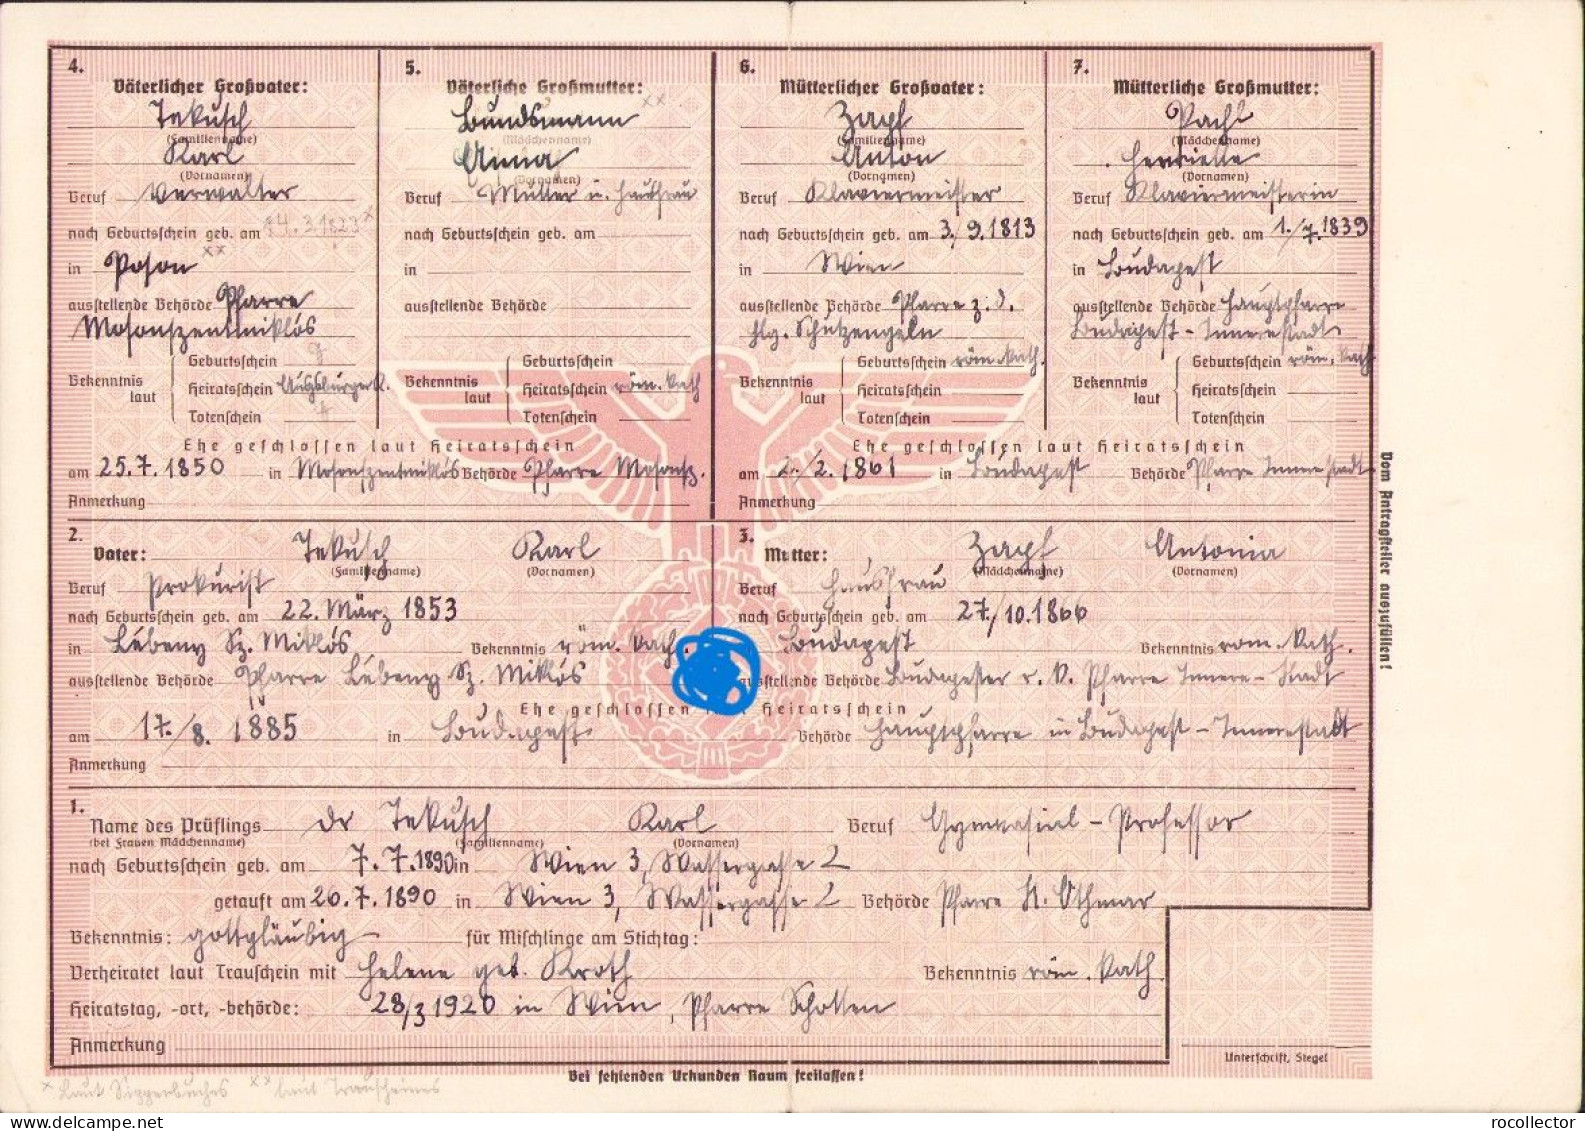 4.
Väterlicher Großvater:
Tekusch
(Familienname)
Karl
(Vornamen)
Beruf Verwalter
nach Geburtsschein geb. am 14.3.1823 x
in Poson xx
ausstellende Behörde Pfarre
Mosonszentmiklós
Bekenntnis laut
Geburtsschein
Heiratsschein Augsburger
Totenschein
5.
Väterliche Großmutter:
Bundsmann xx
(Mädchenname)
Anna
(Vornamen)
Beruf Mutter u. Hausfrau
nach Geburtsschein geb. am
in
ausstellende Behörde
Bekenntnis laut
Geburtsschein
Heiratsschein röm. kath
Totenschein
Ehe geschlossen laut Heiratsschein
am 25.7.1850 in Mosonszentmiklós Behörde Pfarre Mosonsz.
Anmerkung
6.
Mütterlicher Großvater:
Zapf
(Familienname)
Anton
(Vornamen)
Beruf Klaviermeister
nach Geburtsschein geb. am 3./9.1813
in Wien
ausstellende Behörde Pfarre z. d.
hlg. Schutzengeln
Bekenntnis laut
Geburtsschein röm. kath.
Heiratsschein
Totenschein
7.
Mütterliche Großmutter:
(Mädchenname)
Henriette
(Vornamen)
Beruf Klaviermeisterin
nach Geburtsschein geb. am 1./7.1839
in Budapest
ausstellende Behörde Hauptpfarre
Budapest - Innerestadt
Bekenntnis laut
Geburtsschein röm. kath
Heiratsschein
Totenschein
Ehe geschlossen laut Heiratsschein
am 2./2. 1861 in Budapest Behörde Pfarre Innere Stadt
Anmerkung
2.
Vater: Tekusch Karl
(Familienname) (Vornamen)
Beruf Prokurist
nach Geburtsschein geb. am 22. März 1853
in Lébeny Sz. Miklós Bekenntnis röm. kath.
ausstellende Behörde Pfarre Lébeny Sz. Miklós
3.
Mutter: Zapf Antonia
(Mädchenname) (Vornamen)
Beruf Hausfrau
nach Geburtsschein geb. am 27./10.1866
Budapest Bekenntnis röm. kath.
ausstellende Behörde Budapester r. k. Pfarre Innere-Stadt
Ehe geschlossen Heiratsschein
am 17./8. 1885 in Budapest Behörde Hauptpfarre in Budapest - Innerestadt
Anmerkung
1.
Name des Prüflings Dr Tekusch Karl Beruf Gymnasial-Professor
(bei Frauen Mädchenname) (Familienname) (Vornamen)
nach Geburtsschein geb. am 7.7.1890 in Wien 3, Wassergasse 2
getauft am 20.7.1890 in Wien 3, Wassergasse 2 Behörde Pfarre St. Othmar
Bekenntnis: gottgläubig für Mischlinge am Stichtag:
Verheiratet laut Trauschein mit Helene geb. Kroth Bekenntnis röm. kath.
Heiratstag, -ort, -behörde: 28/3 1920 in Wien, Pfarre Schotten
Anmerkung
Unterschrift, Siegel
Bei fehlenden Urkunden Raum freilassen!
x Laut Sippenbuches xx laut Trauscheines
Vom Antragsteller auszufüllen!
11/2/2024 5:26:14 PM UTC
rocollector